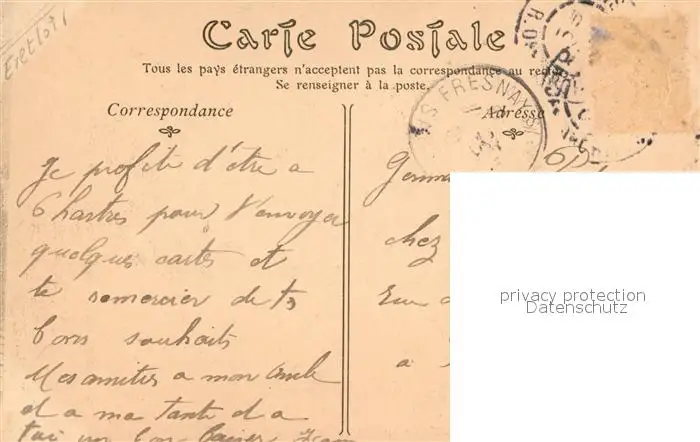 Eretlot
Carte Postale
Tous les pays étrangers n'acceptent pas la correspondance au recto
Se renseigner à la poste.
Correspondance
Adresse
FRESNAY S/
Je profite d'être a
Chartres pour t'envoyer
quelques cartes et
te remercier de ts
bons souhaits
Mes amities a mon oncle
et a ma tante et a
toi un bon baiser Jean
chez
a
privacy protection
Datenschutz